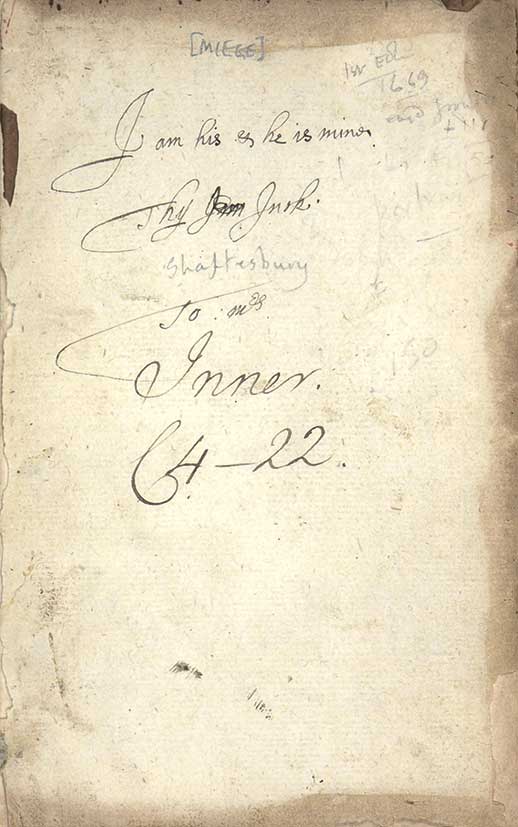 [MIEGE]
1st Ed
1669
I am his & he is mine.
Thy Jack.
Shaftesbury
To : mrs
Inner.
C4-22.
150